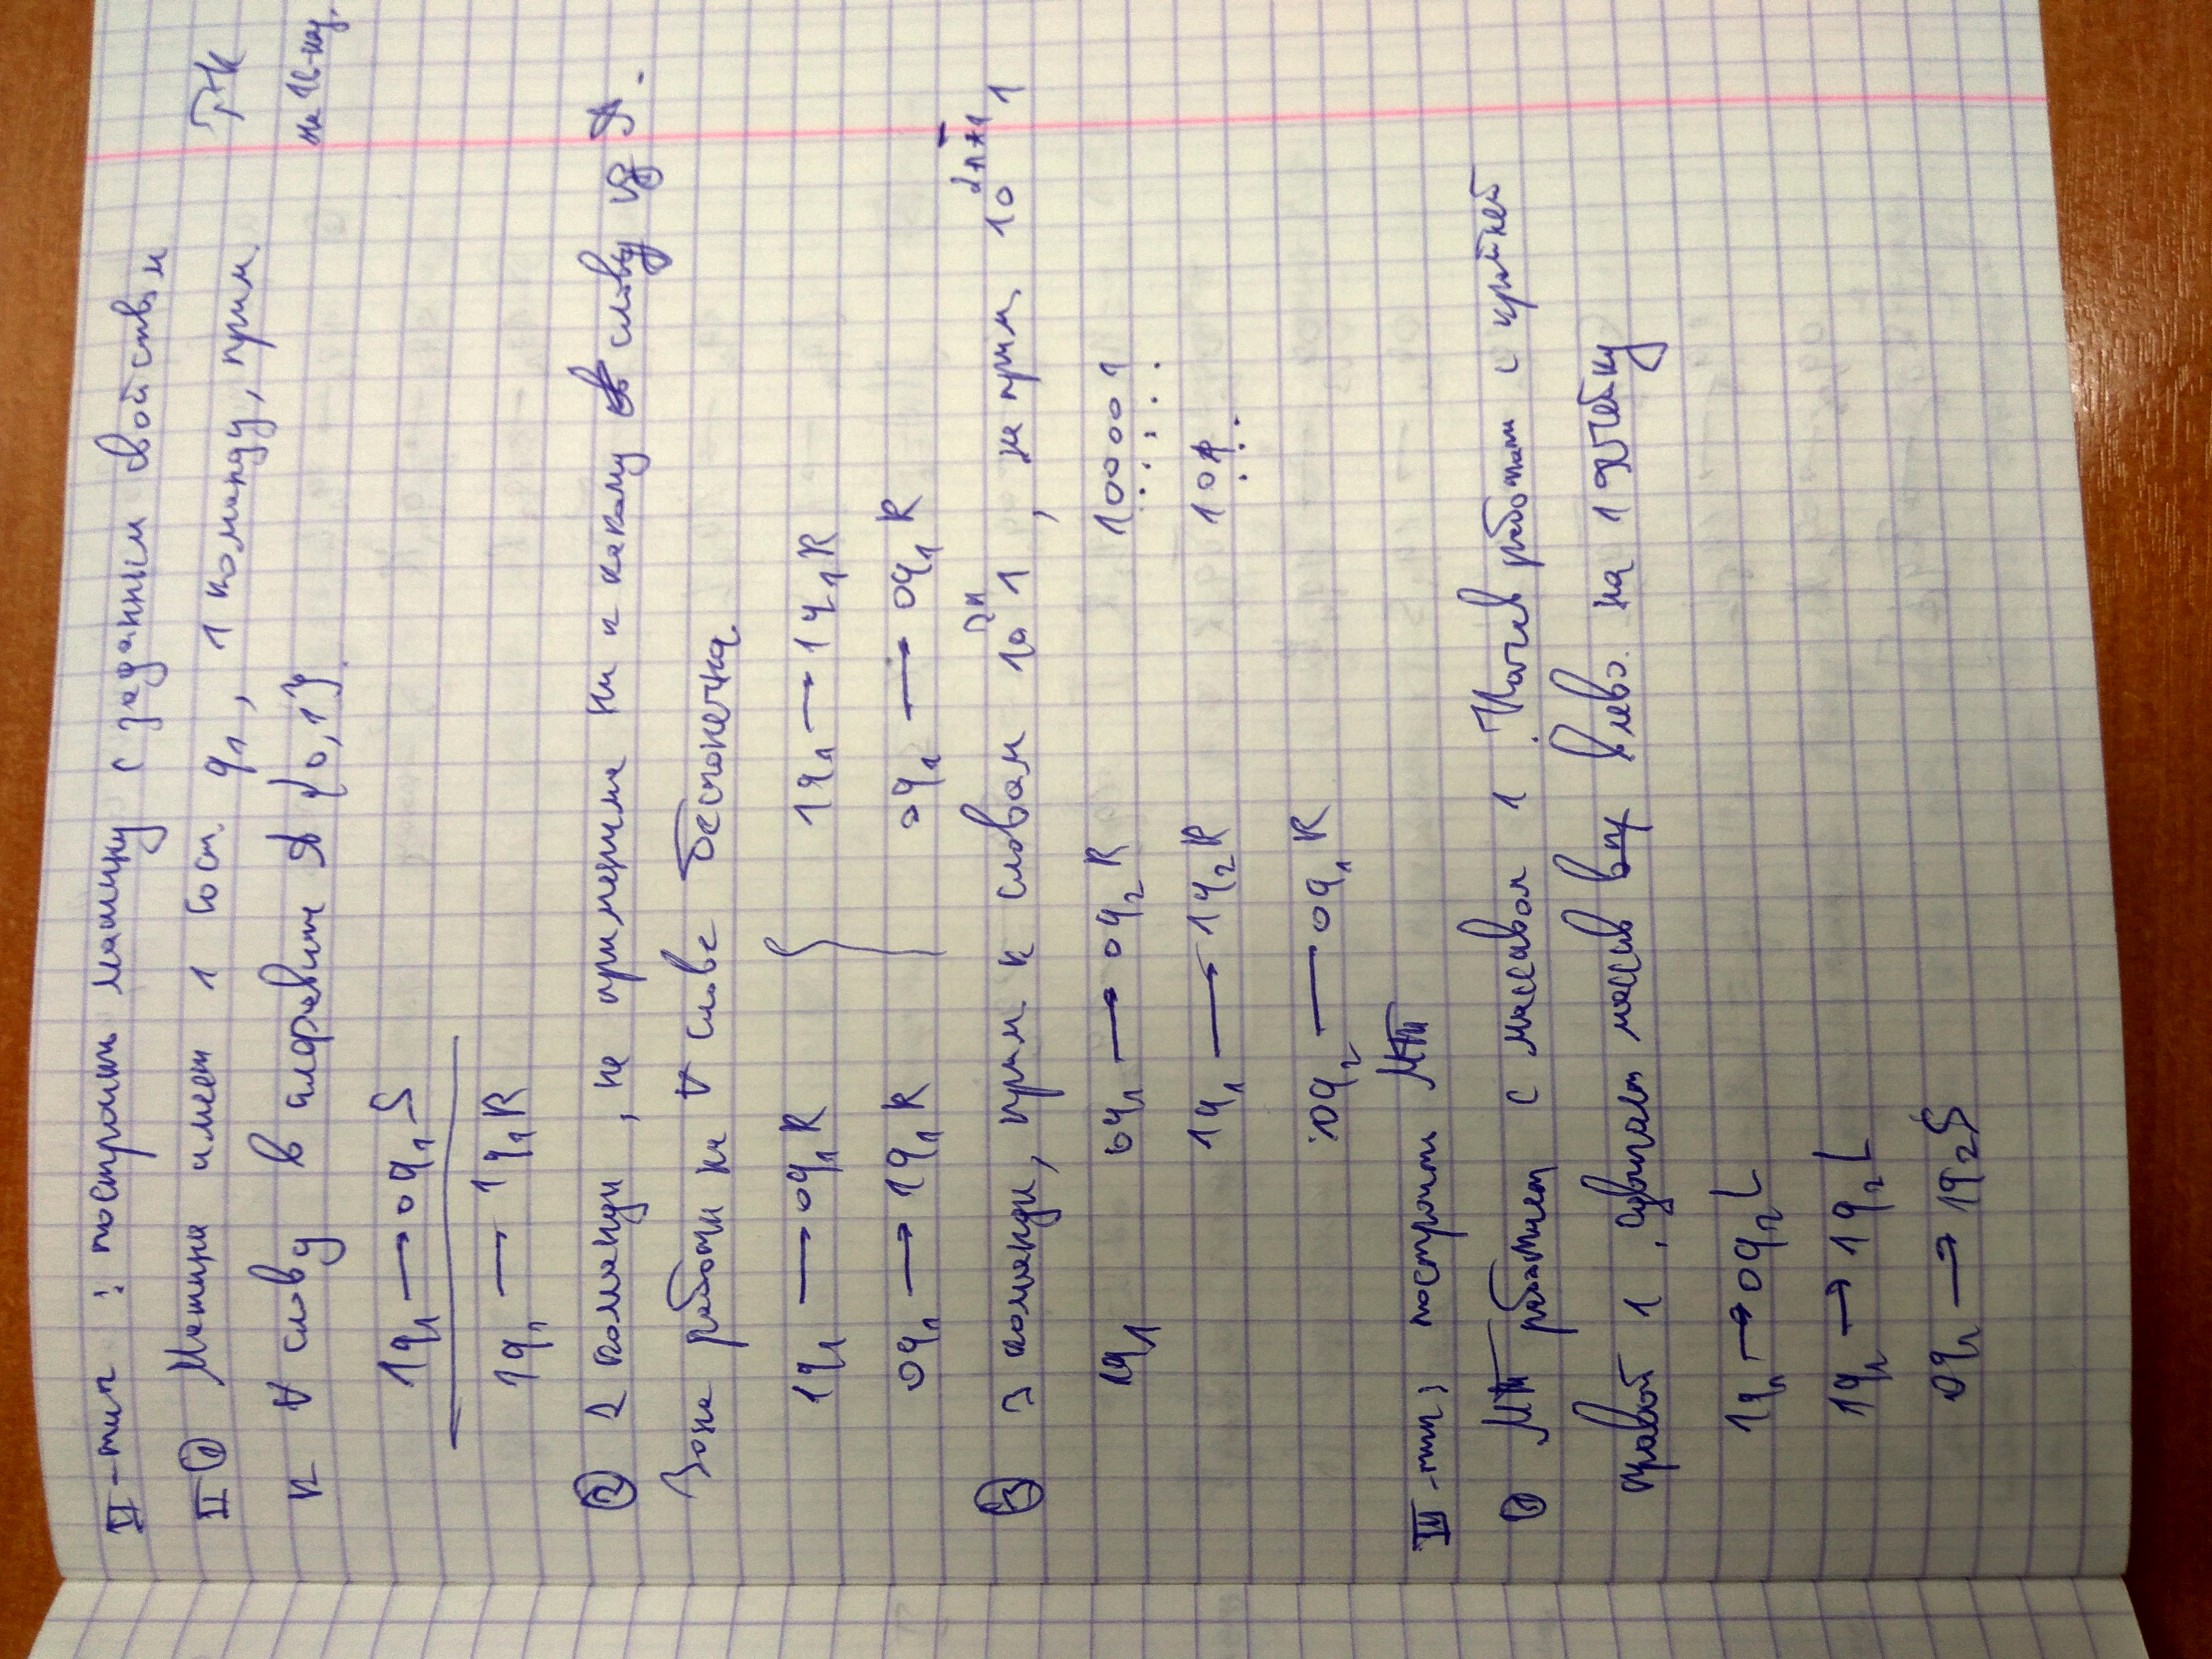 II-тип : построить машину с заданным свойств,и
II ① Машина имеет 1 сост. q₁, 1 команду, прим. ТК
к ∀ слову в алфавит A {0,1}. на 16-кой.
1q₁ → 0q₁S
1q₁ → 1q₁R
② 2 команды, не применима ни к какому слову из A.
Зона работы на ∀ слове бесконечна.
1q₁ → 0q₁R { 1q₁ → 1q₁R
0q₁ → 1q₁R 0q₁ → 0q₁R
③ 3 команды, прим к словам 10²ⁿ1, не прим. 10²ⁿ⁺¹1
1q₁ 0q₁ → 0q₂R 100001
1q₁ → 1q₂R 101
0q₂ → 0q₁R
III-тип; построить МТ
① МТ работает с массивом 1. Начав работать с крайней
правой 1, сдвигает массив влево. на 1 ячейку
1q₁ → 0q₂L
1q₂ → 1q₂L
0q₂ → 1q₂S